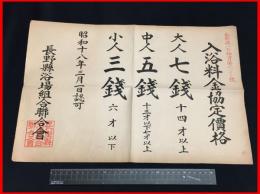 入浴料金協定價格
大人七錢 十四才以上
中人五錢 十三才以下七才以上
小人三錢 六才以下
昭和十八年三月一日認可
長野縣浴場組合聯合會